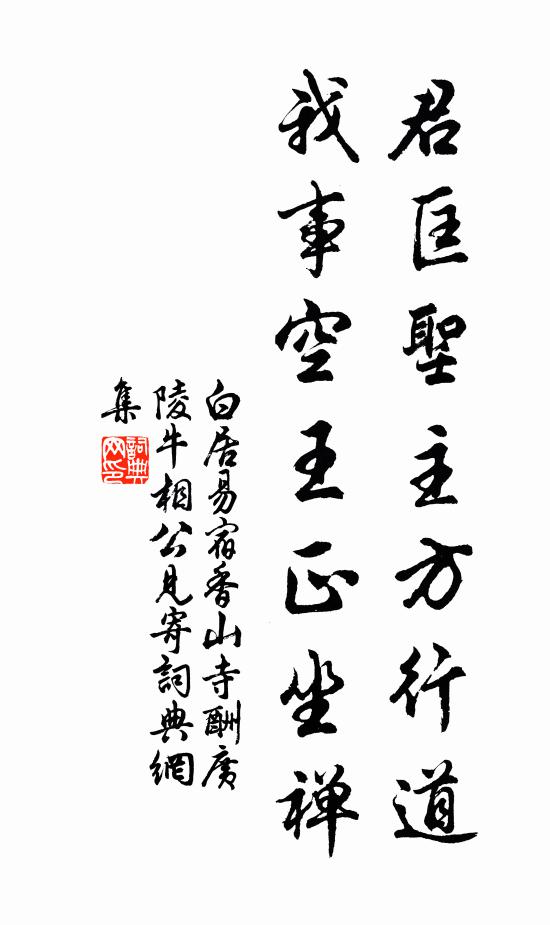 君匡聖主方行道
我事空王正坐禅
白居易宿香山寺酬廣
陵牛相公見寄詞典網
集
詞典網印